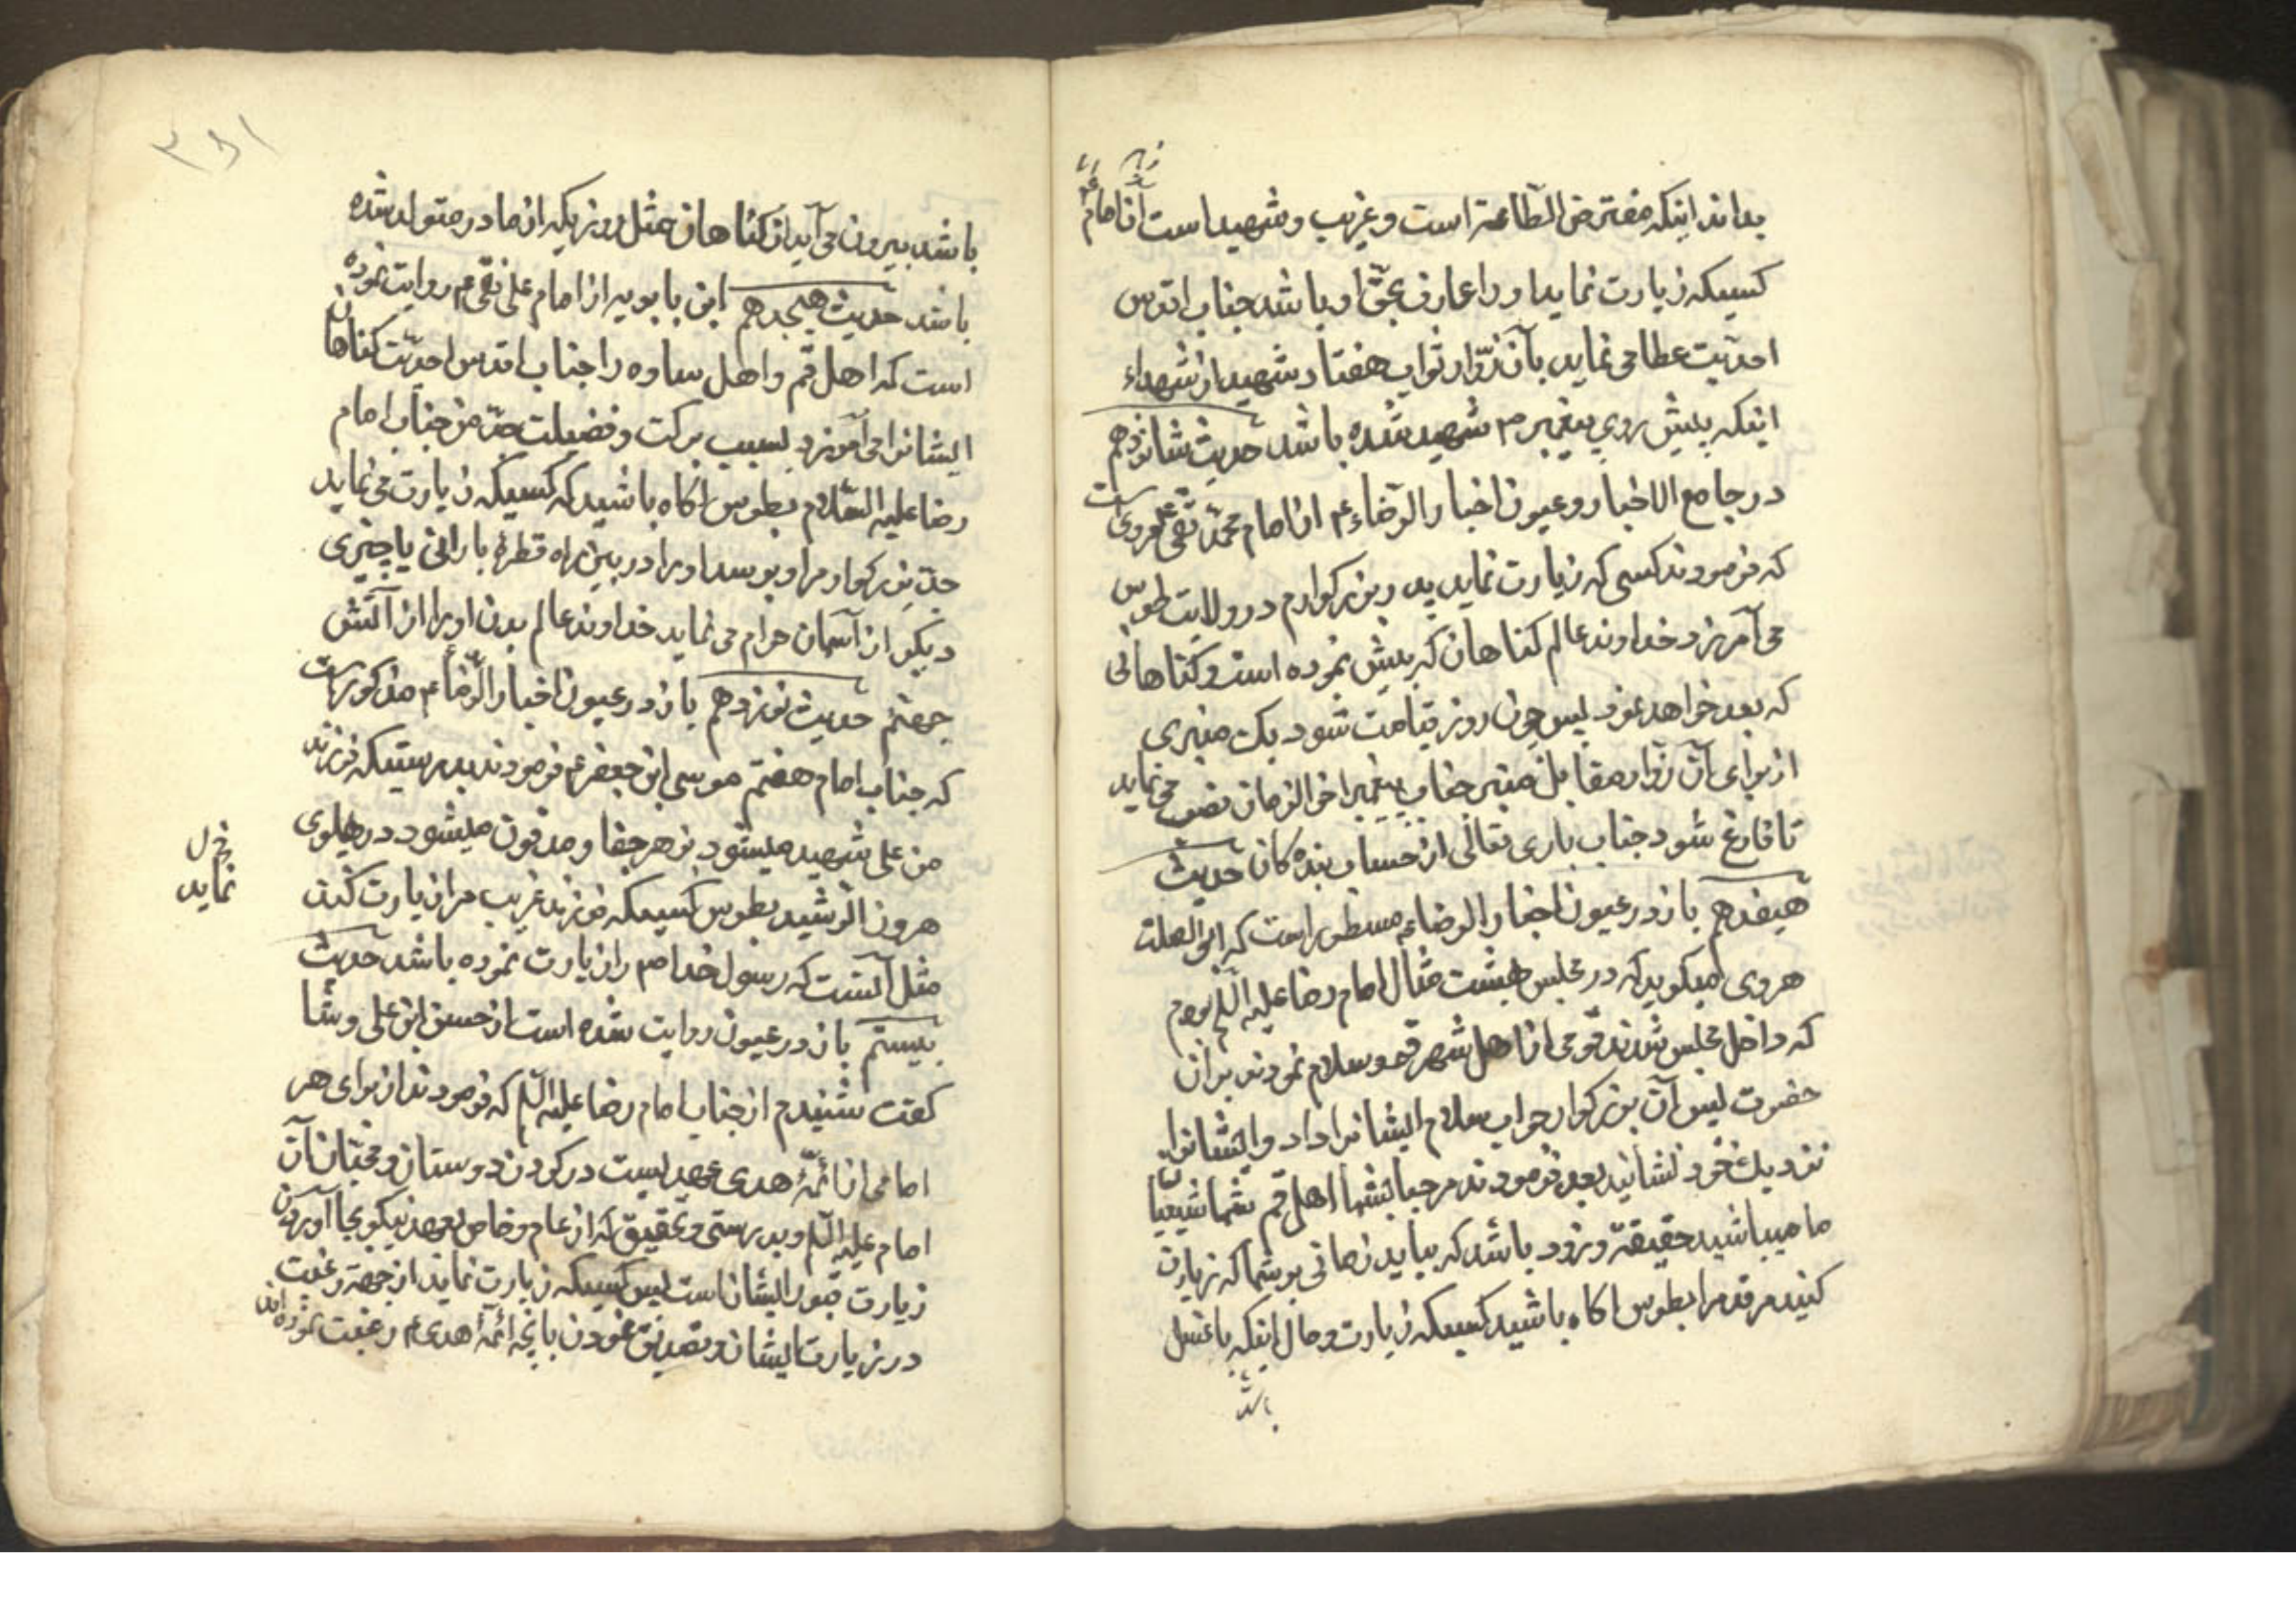 بداند اینکه مفترض الطّاعة است و غریب و شهید است آن امام
کسیکه زیارت نماید او را عارف بحقّ او باشد جناب اقدس
احدیّت عطا می نماید بآن زوّار ثواب هفتاد شهید از شهداء
اینکه پیش روی پیغمبر ص شهید شده باشد حدیث شانزدهم
در جامع الاخبار و عیون اخبار الرّضاء ع از امام محمّد تقی ع مرویست
که فرمودند کسی که زیارت نماید پدر بزرکوارم در ولایت طوس
می آمرزد خداوند عالم کناهان که پیش نموده است و کناهانی
که بعد خواهد نمود پس چون روز قیامت شود یک منبری
از برای آن زوّار مقابل منبر جناب پیغمبر اخر الزمان نصب می نماید
تا فارغ شود جناب باری تعالی از حساب بنده کان حدیث
هیفدهم باز در عیون اخبار الرضا ع مسطور است که ابی الصلت
هروی میکوید که در مجلس بهشت مثال امام رضا علیه السّلم بودم
که داخل مجلس شدند قومی از اهل شهر قم و سلام نمودند بر ان
حضرت پس آن بزرکوار جواب سلام ایشانرا داد و ایشانرا
نزدیک خود نشانید بعد فرمودند مرحبا بشما اهل قم شما شیعیان
ما میباشید حقیقة و زود باشد که بیاید زمانی بر شما که زیارت
کنید مرقد مرا بطوس اکاه باشید کسیکه زیارت و حال اینکه با غسل
باشد
۳۹۱
باشد بیرون می آید از کناهان مثل روزیکه از مادر متولد شده
باشد حدیث هیجدهم ابن بابویه از امام علی نقی ع روایت نموده
است که اهل قم و اهل ساوه را جناب اقدس احدیّت کناهان
ایشانرا می آمرزد بسبب برکت و فضیلت جدّ من جناب امام
رضا علیه السّلام بطوس اکاه باشید که کسیکه زیارت می نماید
جدّ بزرکوار مرا و بوسد او را در بین راه قطرهٔ بارانی یا چیزی
دیکر از آسمان حرام می نماید خداوند عالم بدن او را از آتش
جهنم حدیث نوزدهم باز در عیون اخبار الرّضا ع مذکور است
که جناب امام هفتم موسی ابن جعفر ع فرمودند بدرستیکه فرزند
من علی شهید میشود بزهر جفا و مدفون میشود در پهلوی
هرون الرّشید بطوس کسیکه فرزند غریب مرا زیارت کند
نماید
مثل آنست که رسول خدا ص را زیارت نموده باشد حدیث
بیستم باز در عیون روایت شده است از حسن ابن علی وشا
کفت شنیدم از جناب امام رضا علیه السّلم که فرمودند از برای هر
امامی از ائمّهٔ هدی عهدیست در کردن دوستان و محبّان آن
امام علیه السّلم و بدرستی و تحقیق که از عام و خاص بعهد نیکو بجا آوردن
زیارت قبور ایشان است پس کسیکه زیارت نماید از جهة رغبت
در زیارت ایشان و تصدیق نمودن بانچه ائمّهٔ هدی ع رغبت نموده اند